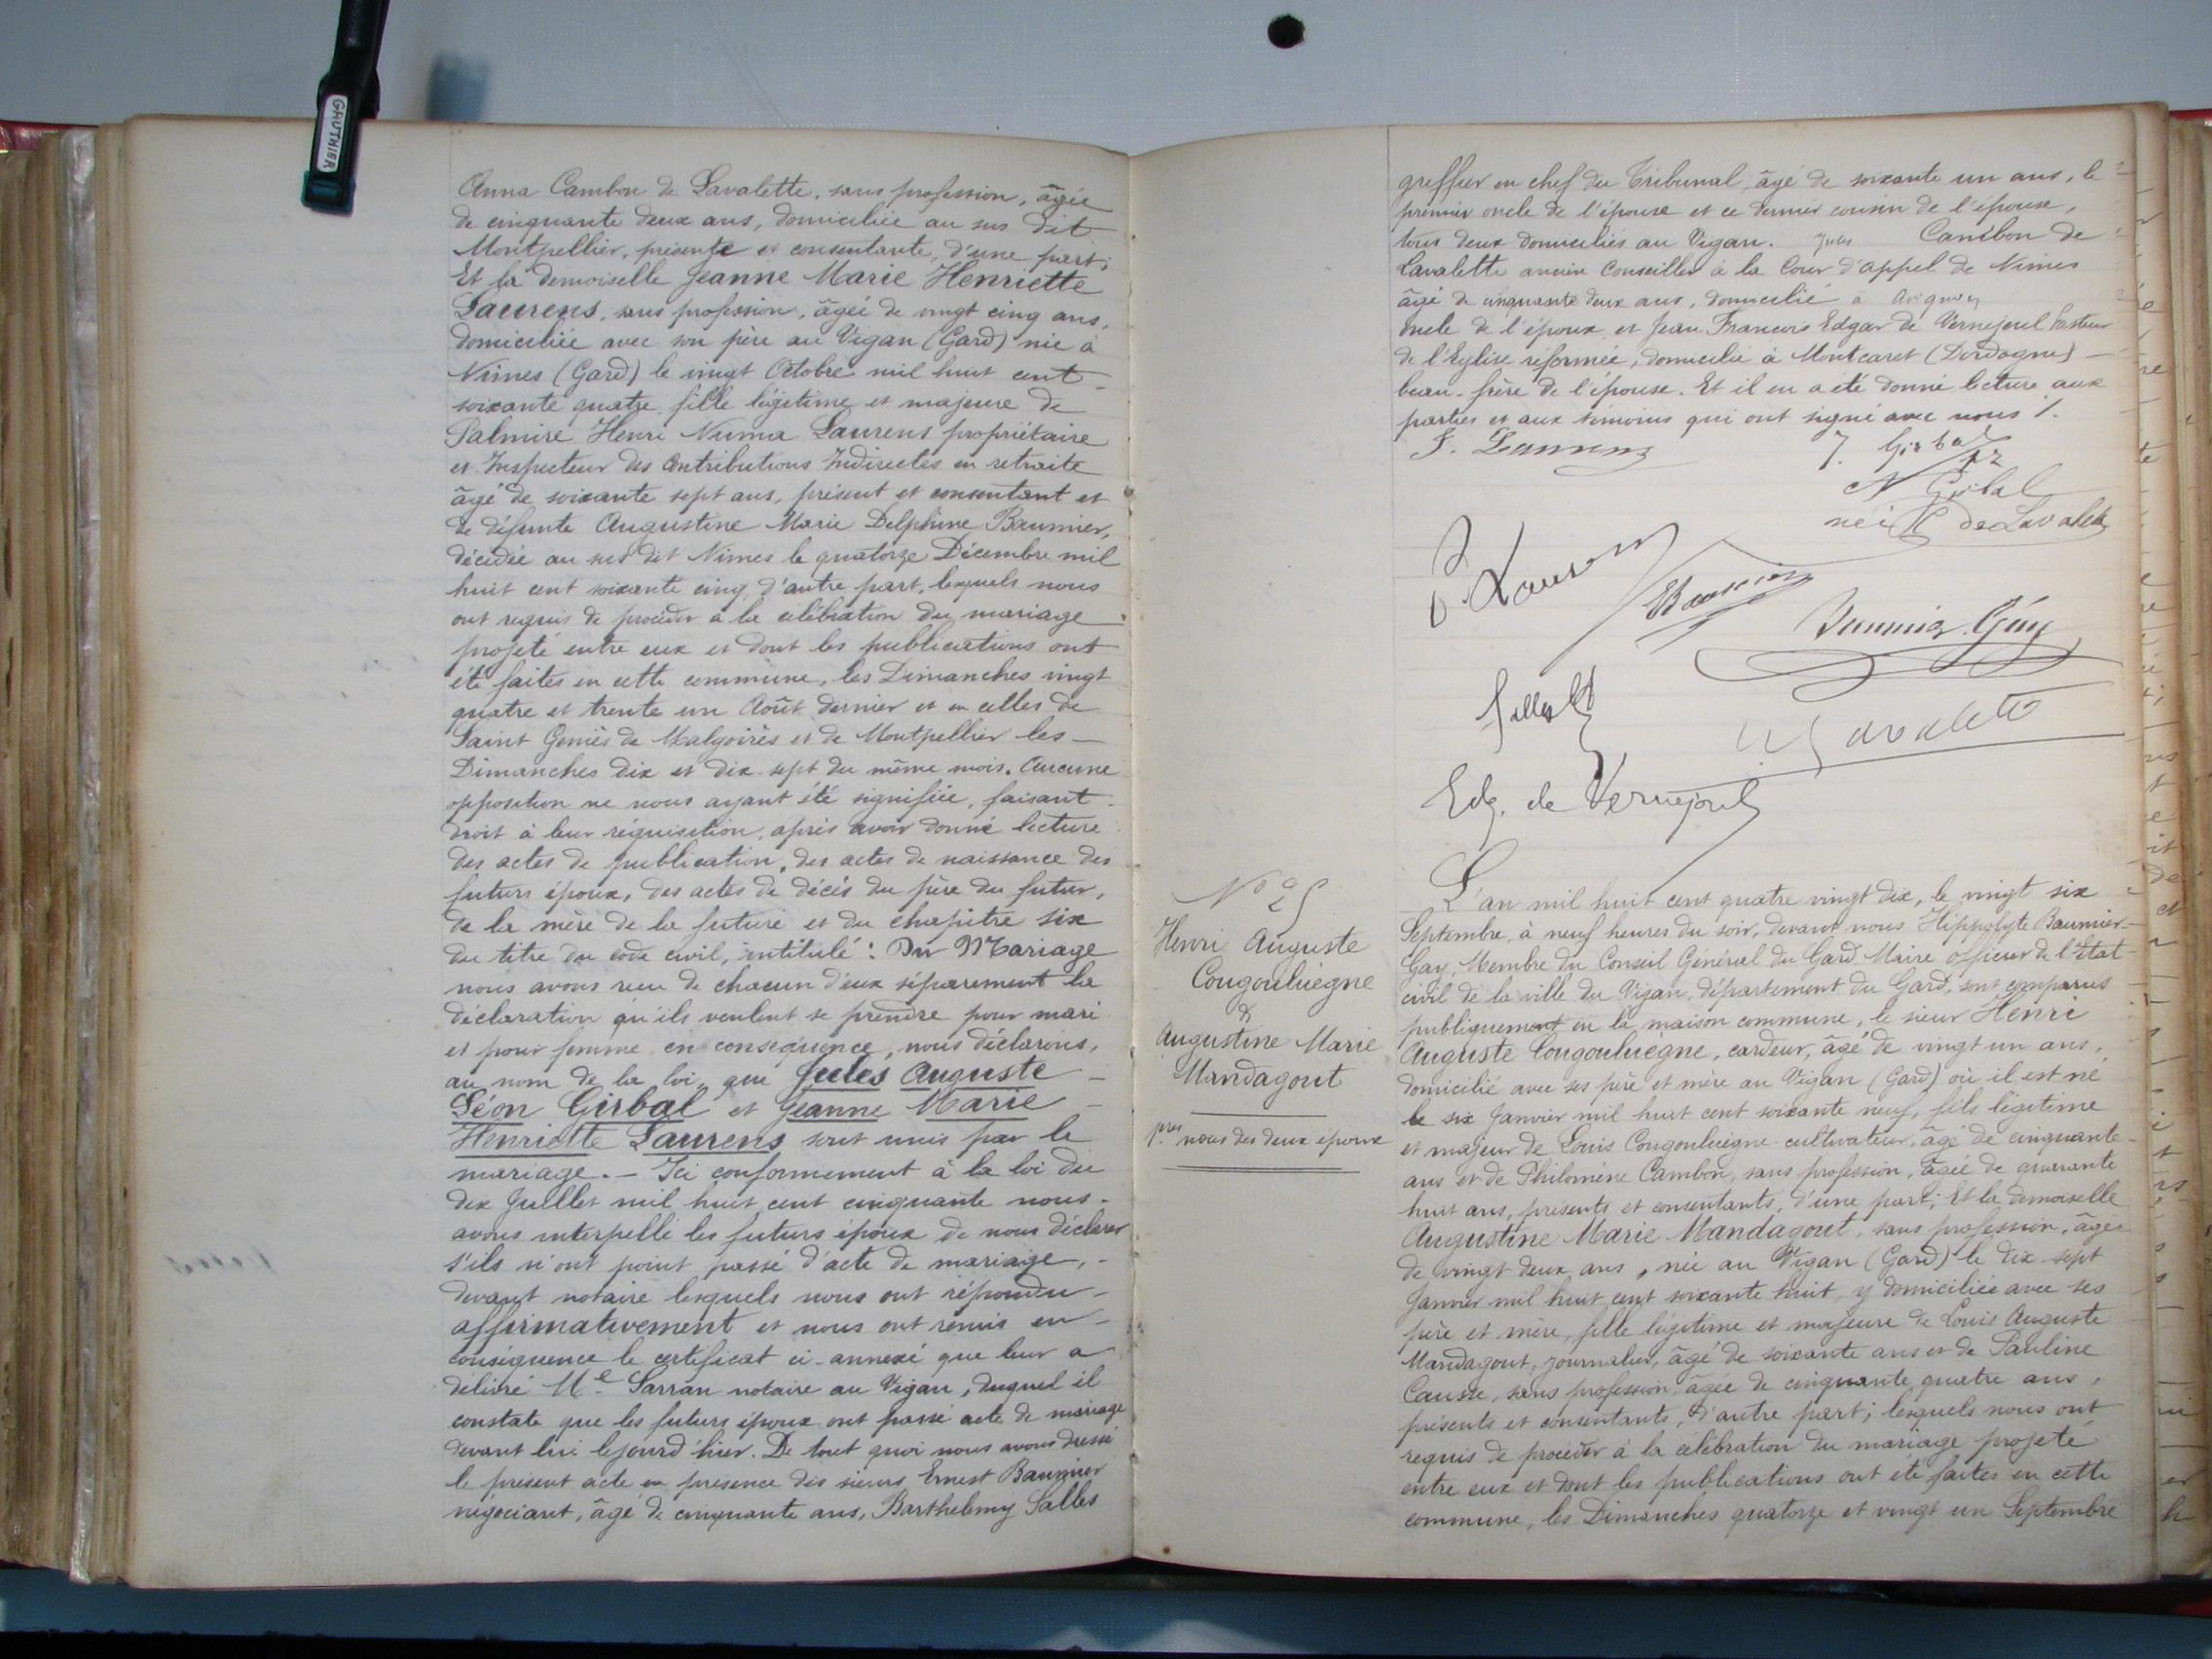 GAUTHIER
Anna Cambon de Lavalette, sans profession, âgée
de cinquante deux ans, domiciliée au sus dit
Montpellier, présente et consentante, d'une part;
Et la demoiselle Jeanne Marie Henriette
Laurens, sans profession, âgée de vingt cinq ans,
domiciliée avec son père au Vigan (Gard) née à
Nimes (Gard) le vingt Octobre mil huit cent
soixante quatre fille légitime et majeure de
Palmire Henri Numa Laurens propriétaire
et Inspecteur des Contributions Indirectes en retraite
âgé de soixante sept ans, présent et consentant et
de défunte Augustine Marie Delphine Baumier,
décédée au sus dit Nimes le quatorze Décembre mil
huit cent soixante cinq, d'autre part, lesquels nous
ont requis de procéder à la célébration du mariage
projeté entre eux et dont les publications ont
été faites en cette commune, les Dimanches vingt
quatre et trente un Août dernier et en celles de
Saint Geniès de Malgoirès et de Montpellier les
Dimanches dix et dix-sept du même mois. Aucune
opposition ne nous ayant été signifiée, faisant
droit à leur réquisition, après avoir donné lecture
des actes de publication, des actes de naissance des
futurs époux, des actes de décès du père du futur,
de la mère de la future et du chapitre six
du titre du code civil, intitulé : Du Mariage
nous avons reçu de chacun d'eux séparement la
déclaration qu'ils veulent se prendre pour mari
et pour femme en conséquence, nous déclarons,
au nom de la loi, que Jules Auguste
Léon Girbal et Jeanne Marie
Henriette Laurens sont unis par le
mariage. - Ici conformement à la loi du
dix Juillet mil huit cent cinquante nous
avons interpellé les futurs époux de nous déclarer
s'ils n'ont point passé d'acte de mariage,
devant notaire lesquels nous ont répondu
affirmativement et nous ont remis en
conséquence le certificat ci-annexé que leur a
délivré Me Sarran notaire au Vigan, duquel il
constate que les futurs époux ont passé acte de mariage
devant lui le jourd'hier. De tout quoi nous avons dressé
le présent acte en présence des sieurs Ernest Baumier
négociant, âgé de cinquante ans, Barthélemy Salles
greffier en chef du Tribunal, âgé de soixante un ans, le
premier oncle de l'épouse et ce dernier cousin de l'épouse,
tous deux domiciliés au Vigan. Jules Cambon de
Lavalette ancien Conseiller à la Cour d'appel de Nimes
âgé de cinquante deux ans, domicilié à Avignon
oncle de l'époux et Jean François Edgar de Vernejoul Pasteur
de l'Eglise réformée, domicilié à Montcaret (Dordogne)
beau-frère de l'épouse. Et il en a été donné lecture aux
parties et aux témoins qui ont signé avec nous /.
J. Laurens
J. Girbal
N Girbal
née C de Lavalette
Laurens
EBaumier
Baumier Gay
Salles
Lavalette
Edg. de Vernejoul
N° 25
Henri Auguste
Cougouluègne
&
Augustine Marie
Mandagout
1res noces des deux époux
L'an mil huit cent quatre vingt dix, le vingt six
Septembre, à neuf heures du soir, devant nous Hippolyte Baumier-
Gay, Membre du Conseil Général du Gard Maire officier de l'Etat
civil de la ville du Vigan, département du Gard, sont comparus
publiquement en la maison commune, le sieur Henri
Auguste Cougouluègne, cardeur, âgé de vingt un ans,
domicilié avec ses père et mère au Vigan (Gard) où il est né
le six Janvier mil huit cent soixante neuf, fils légitime
et majeur de Louis Cougouluègne cultivateur, âgé de cinquante
ans et de Philomène Cambon, sans profession, âgée de quarante
huit ans, présents et consentants, d'une part; Et la demoiselle
Augustine Marie Mandagout, sans profession, âgée
de vingt deux ans, née au Vigan (Gard) le dix sept
Janvier mil huit cent soixante huit, y domiciliée avec ses
père et mère, fille légitime et majeure de Louis Auguste
Mandagout, journalier, âgé de soixante ans et de Pauline
Causse, sans profession, âgée de cinquante quatre ans,
présents et consentants, d'autre part; lesquels nous ont
requis de procéder à la célébration du mariage projeté
entre eux et dont les publications ont été faites en cette
commune, les Dimanches quatorze et vingt un Septembre